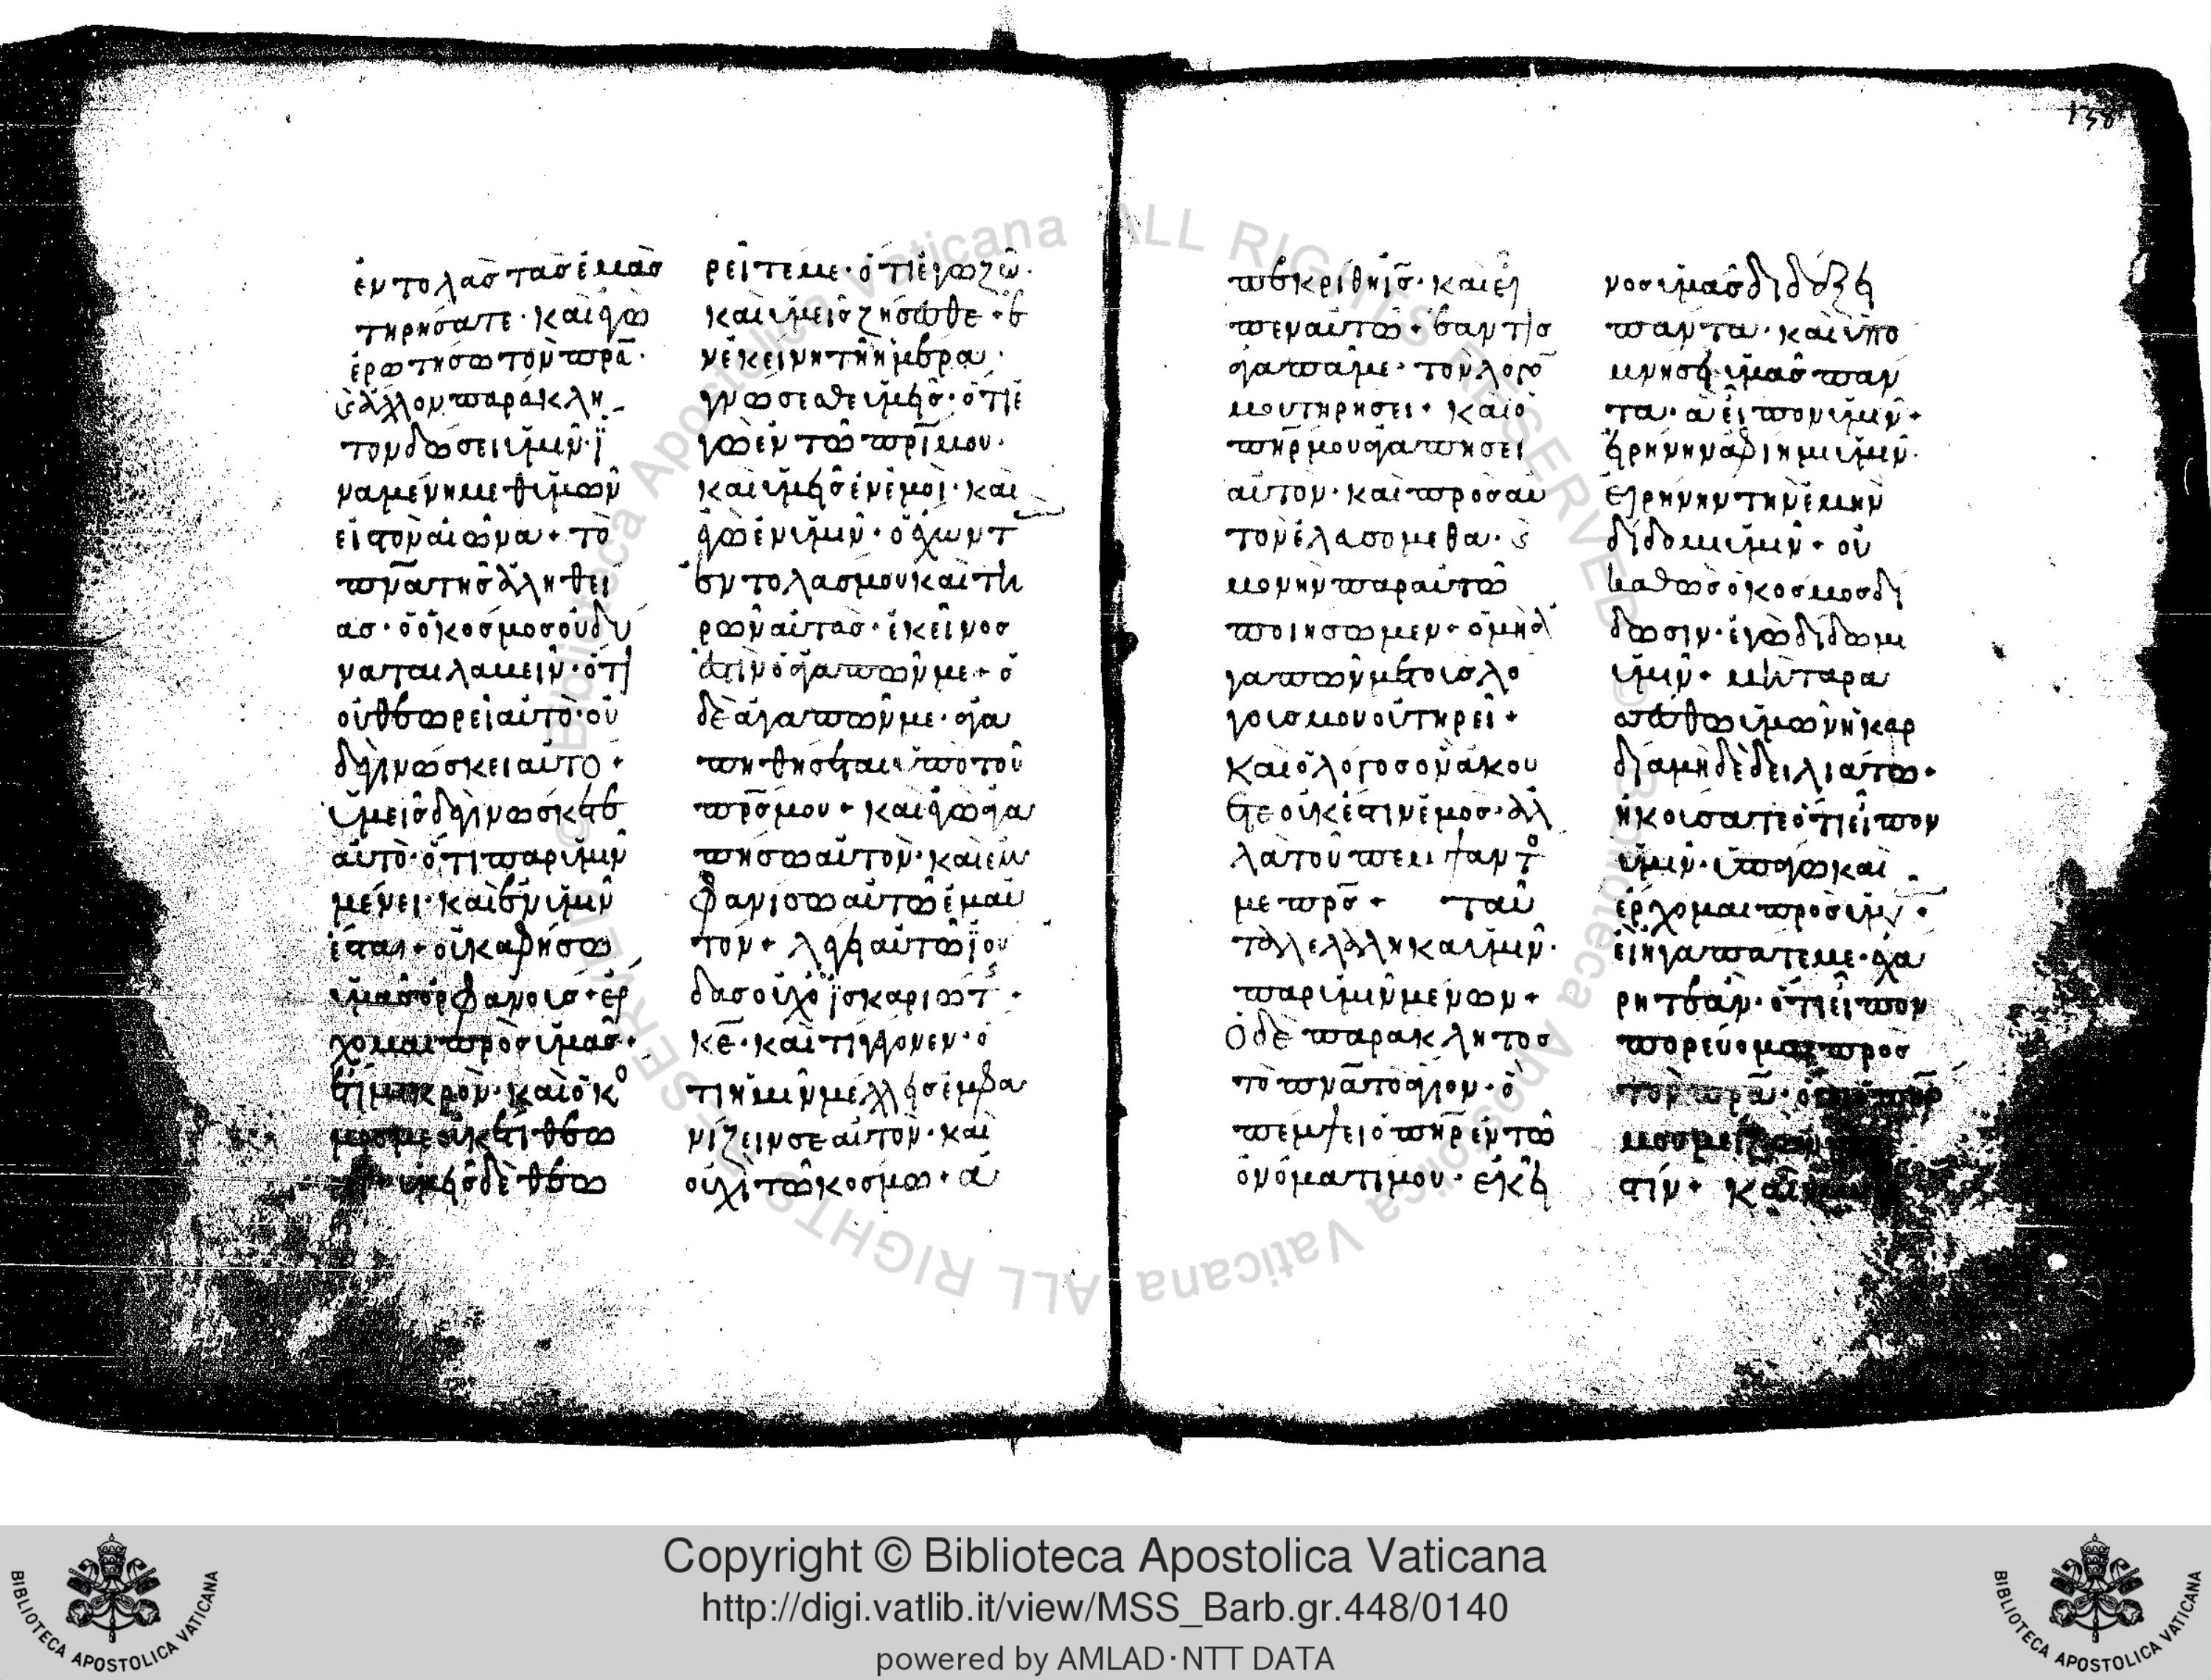 ἐντολὰσ τὰσ ἐμὰσ
τηρήσατε· καὶ ἐγὼ
ἐρωτήσω τὸν πρ̅α·
ἄλλον παράκλη
τον δώσει ὑμῖν· ἵ
να μένη μεθ ὑμῶν
εἰσ τὸν αἰῶνα+ τὸ
πν̅α τῆσ ἀληθεί
ασ· ὃ ὁ κόσμοσ οὐ δύ
ναται λαβεῖν· ὅτι
οὐ θεωρεῖ αὐτὸ· οὐ
δὲ γινώσκει αὐτὸ+
ὑμεῖσ δὲ γινώσκετε
αὐτὸ· ὅτι παρ ὑμῖν
μένει· καὶ ἐν ὑμῖν
ἔσται+ οὐκ ἀφήσω
ὑμᾶσ ὀρφανούσ+ ἔρ
χομαι πρὸσ ὑμᾶσ+
ἔτι μικρὸν· καὶ ὁ κό
μοσ με οὐκ ἔτι θεω
ὑμεῖσ δὲ θεω
ρεῖτέ με· ὅτι ἐγὼ ζῶ·
καὶ ὑμεῖσ ζήσεσθε+ ἐ
ν ἐκείνη τῆ ἡμέρα·
γνώσεσθε ὑμεῖσ· ὅτι ἐ
γὼ ἐν τῶ πρ̅ι μου·
καὶ ὑμεῖσ ἐν ἐμοὶ· καὶ
ἐγὼ ἐν ὑμῖν· ὁ ἔχων τ
ἐντολάσ μου καὶ τη
ρῶν αὐτὰσ· ἐκεῖνοσ
ἐστὶν ὁ ἀγαπῶν με+ ὁ
δὲ ἀγαπῶν με· ἀγα
πηθήσεται ὑπὸ τοῦ
πρ̅σ μου+ καὶ ἐγὼ ἀγα
πήσω αὐτὸν· καὶ ἐμ
φανίσω αὐτῶ ἐμαυ
τόν+ λέγει αὐτῶ ἰού
δασ οὐχ ὁ ἰσκαριώτ·
κ̅ε· καὶ τί γέγονεν· ὁ
τι ἡμῖν μέλλεισ ἐμφα
νίζειν σεαυτὸν· καὶ
οὐχὶ τῶ κόσμω+ ἀ
πεκρίθη ἰσ̅· καὶ εἶ
πεν αὐτῶ+ ἐάν τισ
ἀγαπᾶ με· τὸν λόγο̅
μου τηρήσει+ καὶ ὁ
πη̅ρ μου ἀγαπήσει
αὐτὸν· καὶ πρὸσ αὐ
τὸν ἐλασόμεθα·
μονὴν παρ αὐτῶ
ποιήσωμεν+ ὁ μὴ ἀ
γαπῶν με τοὺσ λό
γουσ μου οὐ τηρεῖ+
καὶ ὁ λόγοσ ὃν ἀκού
ετε οὐκ ἔστιν ἐμόσ· ἀλ
λὰ τοῦ πέμψαντο
με πρ̅σ+ ταῦ
τα λελάληκα ὑμῖν·
παρ ὑμῖν μένων+
Ὁ δὲ παράκλητοσ
τὸ πν̅α τὸ ἅγιον· ὃ
πέμψει ὁ πη̅ρ ἐν τῶ
ὀνόματί μου· ἐκεῖ
νοσ ὑμᾶσ διδάξει
πάντα· καὶ ὑπο
μνήσει ὑμᾶσ πάν
τα· ἃ εἶπον ὑμῖν+
εἰρήνην ἀφίημι ὑμῖν·
εἰρήνην τὴν ἐμὴν
δίδομι ὑμῖν+ οὐ
καθὼσ ὁ κόσμοσ δί
δωσιν· ἐγὼ δίδωμι
ὑμῖν+ μὴ ταρα
σσέσθω ὑμῶν ἡ καρ
δία μηδὲ δειλιάτω·
ἠκούσατε ὅτι εἶπον
ὑμῖν· ὑπάγω καὶ
ἔρχομαι πρὸσ ὑμ+
εἰ ἠγαπᾶτέ με· ἐχά
ρητε ἂν· ὅτι εἶπον
πορεύομαι πρὸσ
τὸν πρ̅α· ὅτι ὁ πηρ
μου μείζων
στίν+ καὶ
158
Copyright © Biblioteca Apostolica Vaticana
http://digi.vatlib.it/view/MSS_Barb.gr.448/0140
powered by AMLAD·NTT DATA
BIBLIOTECA APOSTOLICA VATICANA
BIBLIOTECA APOSTOLICA VATICANA
© Biblioteca Apostolica Vaticana ALL RIGHTS RESERVED
© Biblioteca Apostolica Vaticana ALL RIGHTS RESERVED